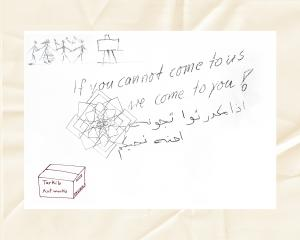 If you cannot come to us
we come to you!
اذا مكدرتوا تجونه
احنه نجيكم
Tarkib
Art works